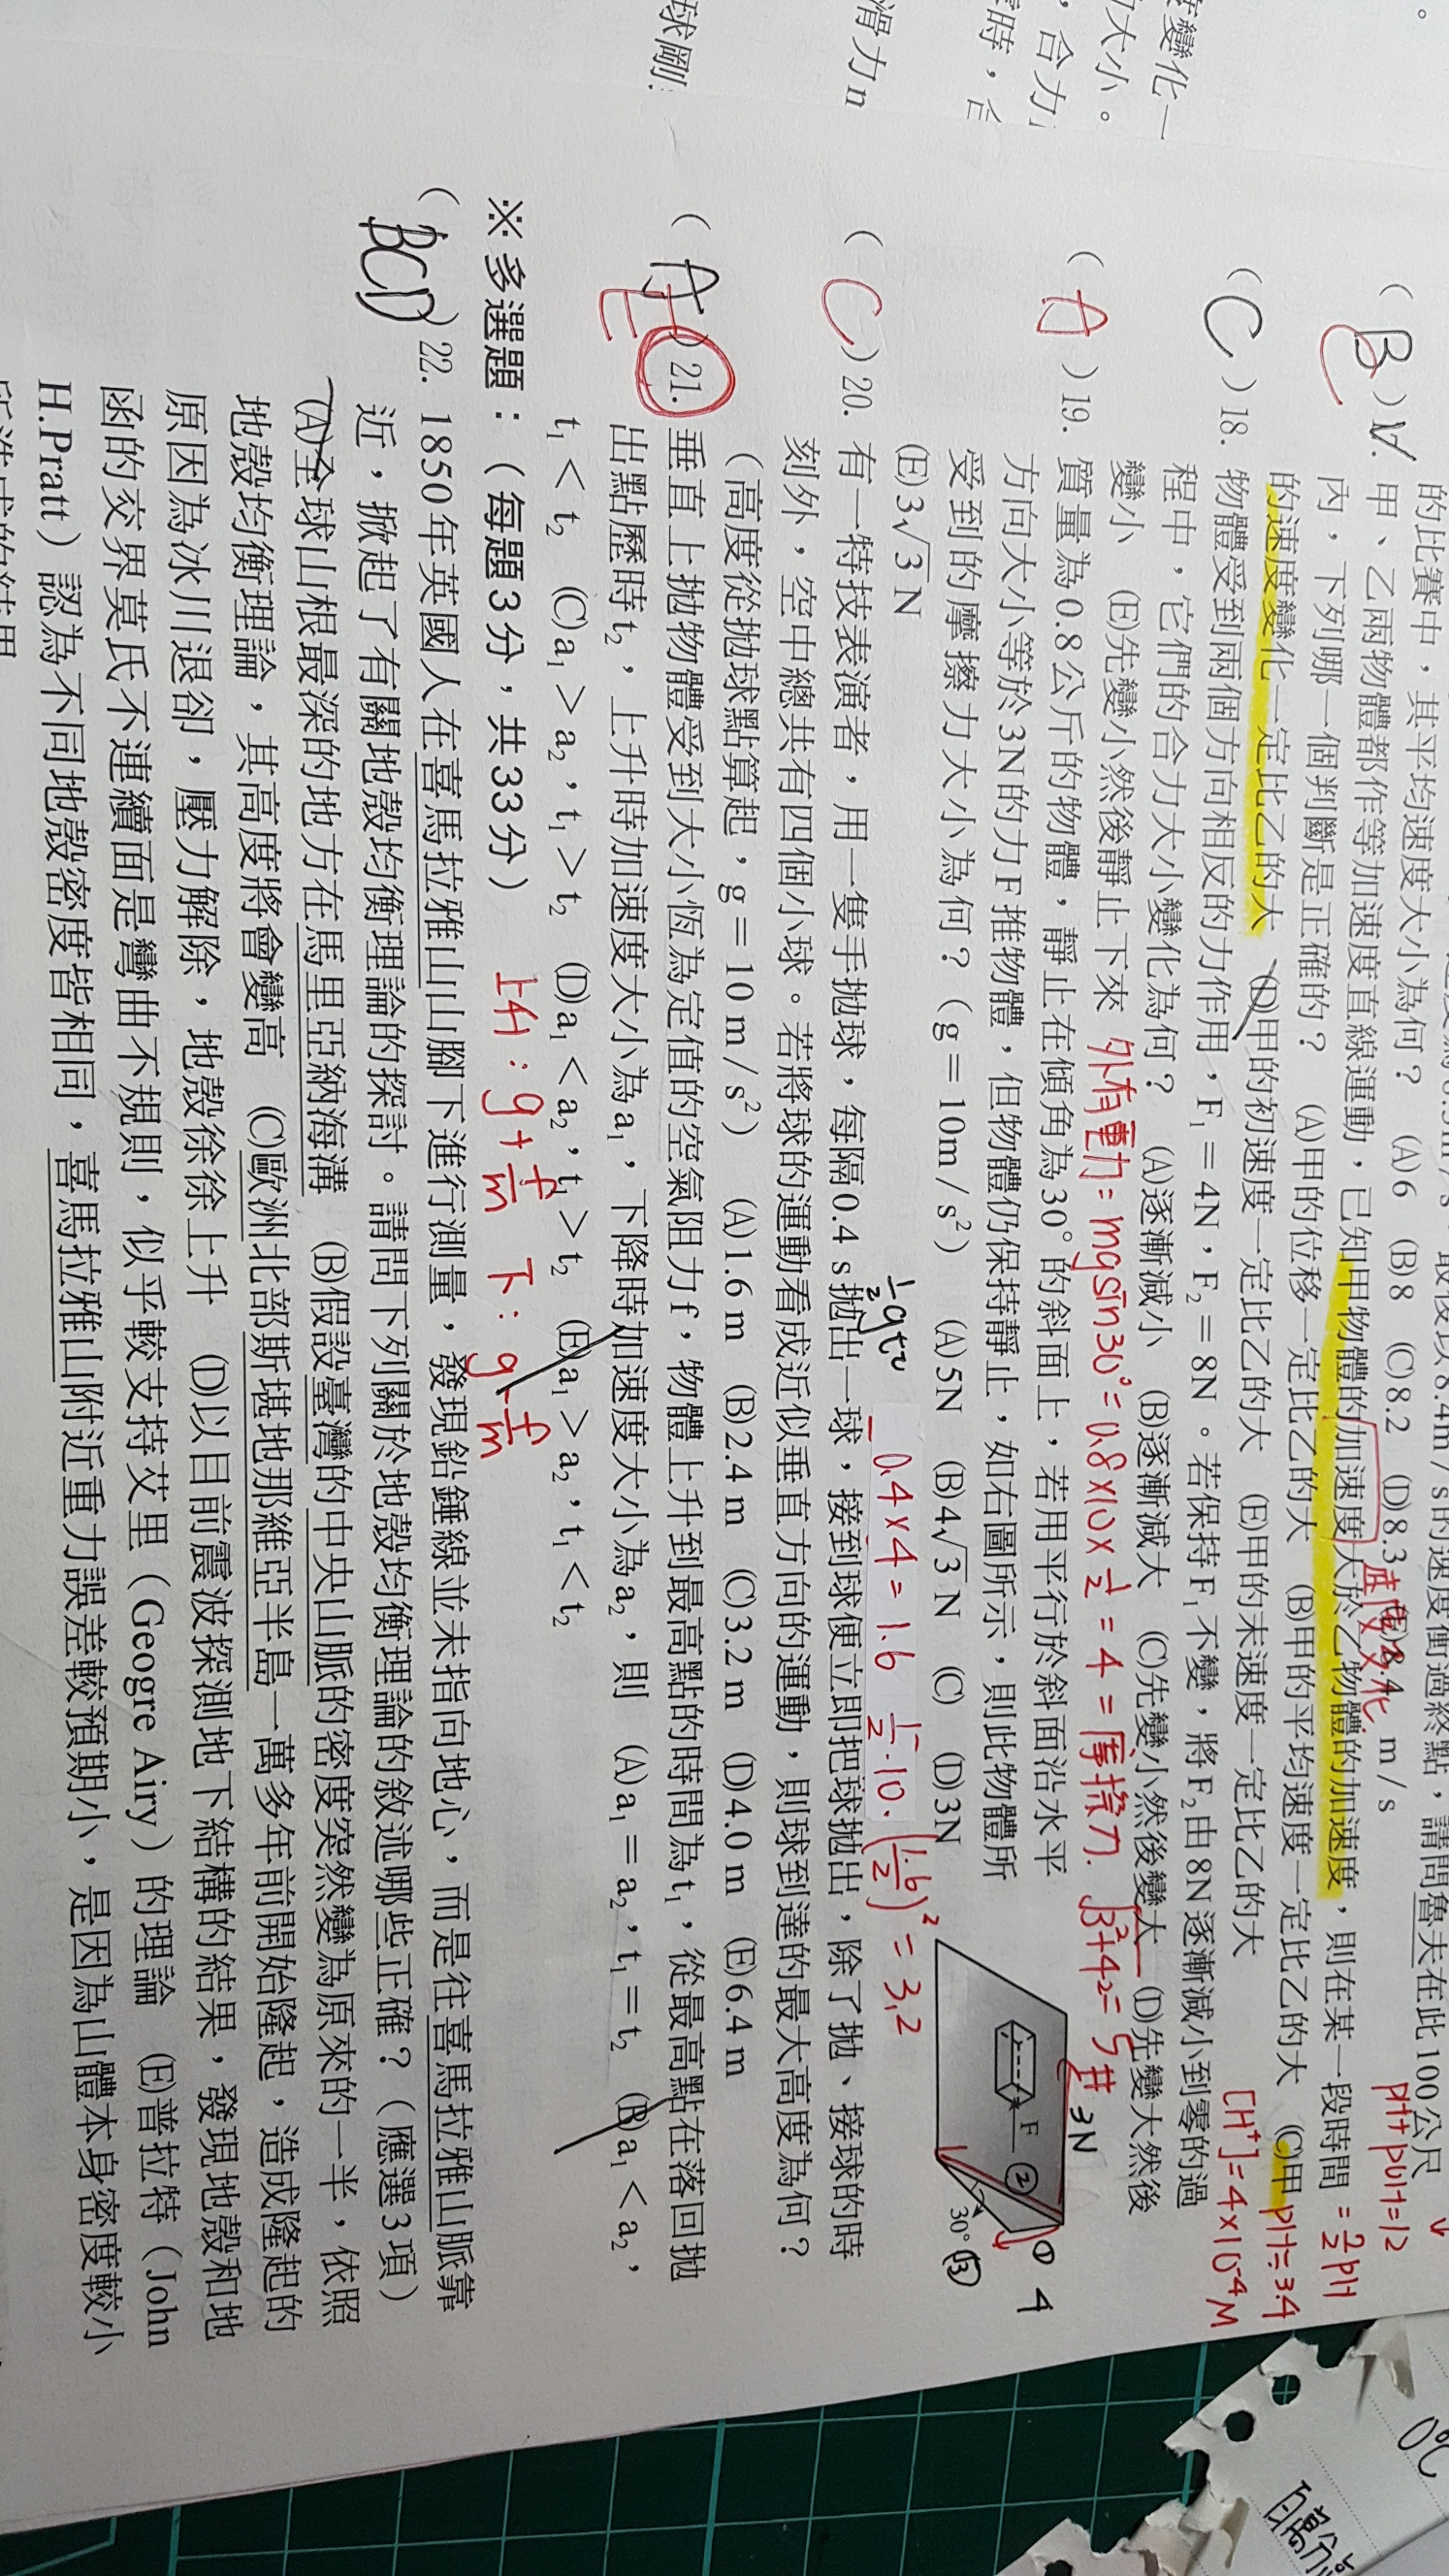 度變化一
大小。
，合力
時，合
滑力n
球剛
的比賽中，其平均速度大小為何？ (A)6 (B)8 (C)8.2 (D)8.3 (E)8.4 m/s
最後以8.4m/s的速度衝過終點，請問魯夫在此100公尺
(B)17. 甲、乙兩物體都作等加速度直線運動，已知甲物體的加速度大於乙物體的加速度，則在某一段時間
內，下列哪一個判斷是正確的？ (A)甲的位移一定比乙的大 (B)甲的平均速度一定比乙的大 (C)甲
的速度變化一定比乙的大 (D)甲的初速度一定比乙的大 (E)甲的末速度一定比乙的大
速度變化
pH+pOH=12
=½pH
pH=3.4
[H⁺]=4×10⁻⁴M
(C)18. 物體受到兩個方向相反的力作用，F₁＝4N，F₂＝8N。若保持F₁不變，將F₂由8N逐漸減小到零的過
程中，它們的合力大小變化為何？ (A)逐漸減小 (B)逐漸減大 (C)先變小然後變大 (D)先變大然後
變小 (E)先變小然後靜止下來
外有重力=mgsin30°=0.8×10×½=4=摩擦力. √3²+4²=5#
(A)19. 質量為0.8公斤的物體，靜止在傾角為30°的斜面上，若用平行於斜面沿水平
方向大小等於3N的力F推物體，但物體仍保持靜止，如右圖所示，則此物體所
受到的摩擦力大小為何？（g＝10m/s²） (A)5N (B)4√3N (C) (D)3N
(E)3√3N
F
3N
②
①
4
30°
√3
½gt²
0.4×4=1.6 ½·10·(1.6/2)²=3.2
(C)20. 有一特技表演者，用一隻手拋球，每隔0.4 s拋出一球，接到球便立即把球拋出，除了拋、接球的時
刻外，空中總共有四個小球。若將球的運動看成近似垂直方向的運動，則球到達的最大高度為何？
（高度從拋球點算起，g＝10 m/s²） (A)1.6 m (B)2.4 m (C)3.2 m (D)4.0 m (E)6.4 m
(A)21. 垂直上拋物體受到大小恆為定值的空氣阻力f，物體上升到最高點的時間為t₁，從最高點在落回拋
E
出點歷時t₂，上升時加速度大小為a₁，下降時加速度大小為a₂，則 (A)a₁＝a₂，t₁＝t₂ (B)a₁＜a₂，
t₁＜t₂ (C)a₁＞a₂，t₁＞t₂ (D)a₁＜a₂，t₁＞t₂ (E)a₁＞a₂，t₁＜t₂
上升：g+f/m 下：g-f/m
※多選題：（每題3分，共33分）
(BCD)22. 1850年英國人在喜馬拉雅山山腳下進行測量，發現鉛錘線並未指向地心，而是往喜馬拉雅山脈靠
近，掀起了有關地殼均衡理論的探討。請問下列關於地殼均衡理論的敘述哪些正確？（應選3項）
(A)全球山根最深的地方在馬里亞納海溝 (B)假設臺灣的中央山脈的密度突然變為原來的一半，依照
地殼均衡理論，其高度將會變高 (C)歐洲北部斯堪地那維亞半島一萬多年前開始隆起，造成隆起的
原因為冰川退卻，壓力解除，地殼徐徐上升 (D)以目前震波探測地下結構的結果，發現地殼和地
函的交界莫氏不連續面是彎曲不規則，似乎較支持艾里（Geogre Airy）的理論 (E)普拉特（John
H.Pratt）認為不同地殼密度皆相同，喜馬拉雅山附近重力誤差較預期小，是因為山體本身密度較小
所造成的結果
0℃
百萬分